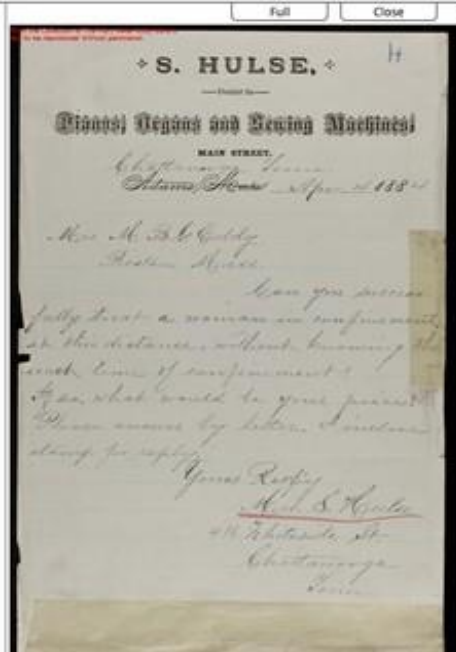 Full Close
H
S. HULSE,
Dealer in
Pianos, Organs and Sewing Machines,
MAIN STREET.
Chattanooga Tenn
Adams, Mass Apr 4 1884
Mrs M. B. G. Eddy
Boston Mass
Can you success
fully treat a woman in confinement,
at this distance, without knowing the
exact time of confinement?
Also, what would be your price?
Please answer by letter. I inclose
stamp for reply
Yours Respy
Mrs. S. Hulse
Whiteside St.
Chattanooga
Tenn